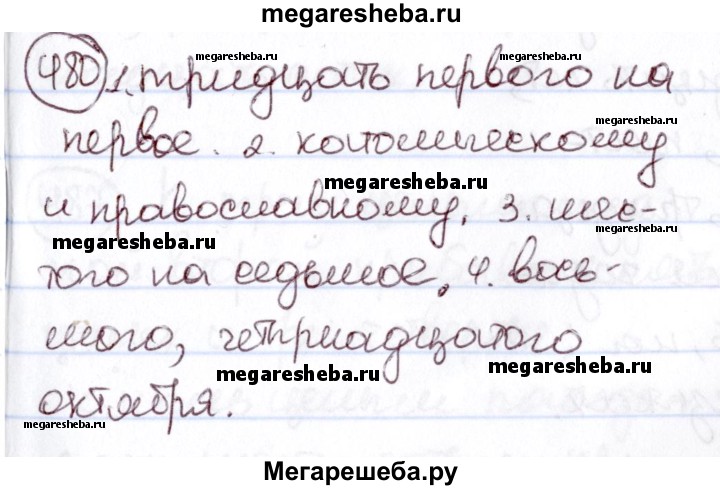 megaresheba.ru
480 1. тридцать первого на
megaresheba.ru
megaresheba.ru
первое. 2. католическому
megaresheba.ru
и православному. 3. шес-
megaresheba.ru
того на седьмое. 4. вось-
megaresheba.ru
мого, четырнадцатого
megaresheba.ru
megaresheba.ru
октября.
Мегарешеба.ру